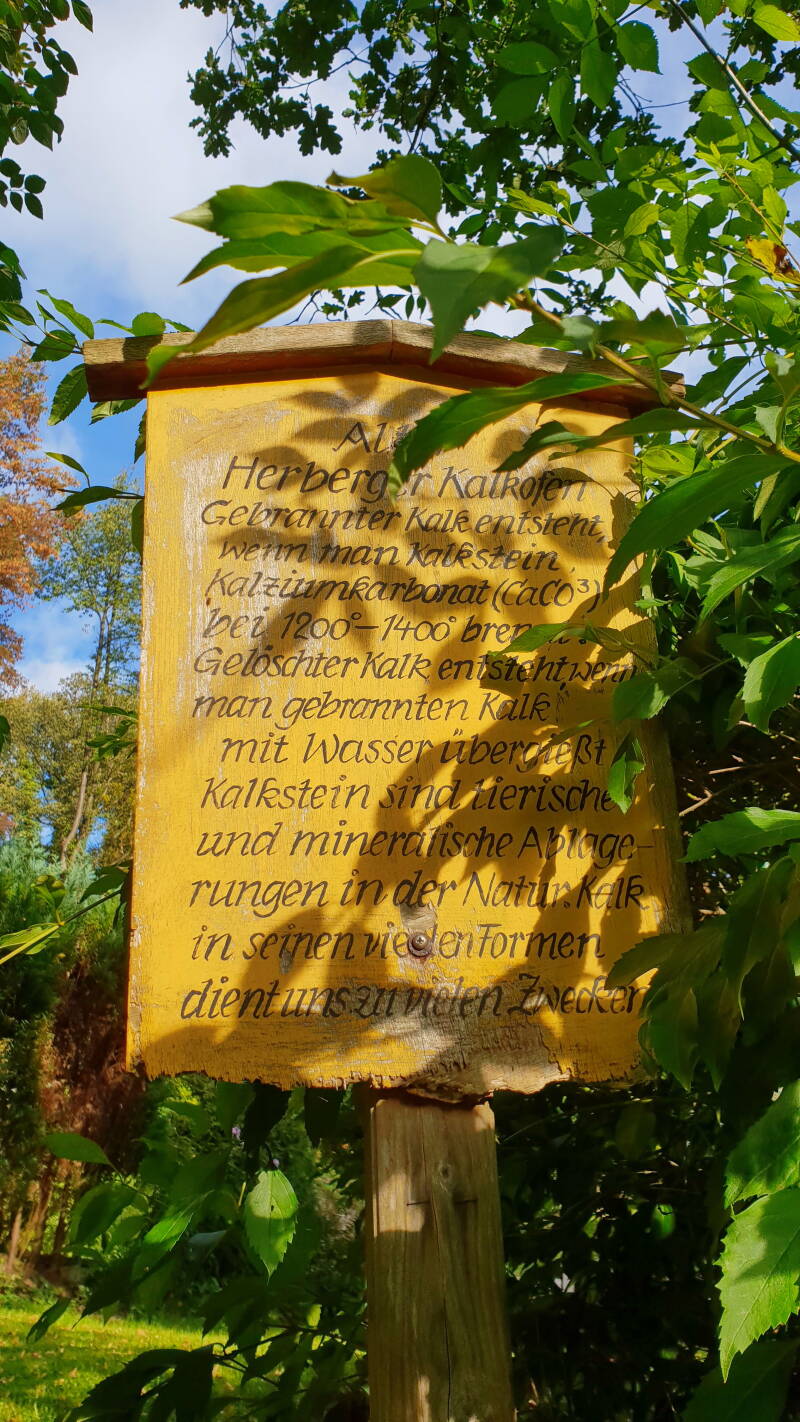 Herberger Kalkofen
Gebrannter Kalk entsteht,
wenn man Kalkstein,
Kalziumkarbonat (CaCO³)
bei 1200°–1400°
Gelöschter Kalk entsteht, wenn
man gebrannten Kalk
mit Wasser übergießt
Kalkstein sind tierische
und mineralische Ablage-
rungen in der Natur. Kalk
in seinen vielen Formen
dient uns zu vielen Zwecken